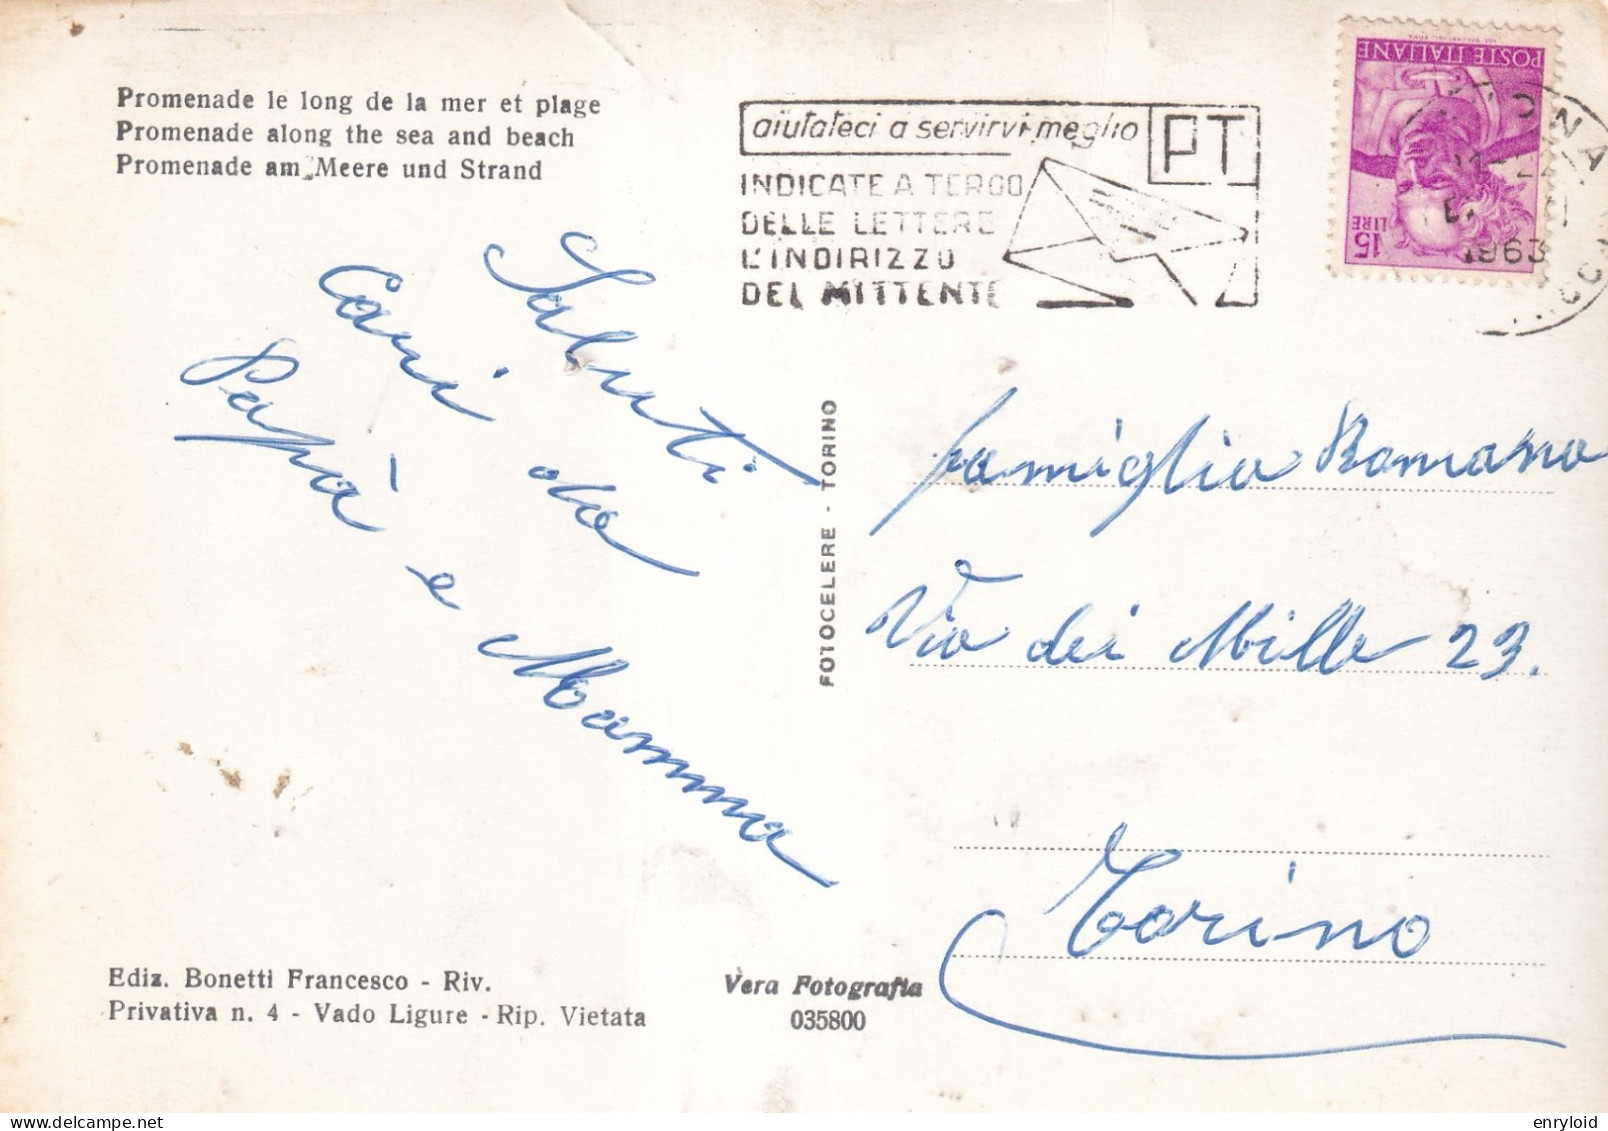 Promenade le long de la mer et plage
Promenade along the sea and beach
Promenade am Meere und Strand
aiutateci a servirvi meglio
PT
INDICATE A TERGO
DELLE LETTERE
L'INDIRIZZO
DEL MITTENTE
POSTE ITALIANE
15
LIRE
1963
Saluti
Cari da
Papà e Mamma
FOTOCELERE - TORINO
famiglia Romano
Via dei Mille 23.
Torino
Ediz. Bonetti Francesco - Riv.
Privativa n. 4 - Vado Ligure - Rip. Vietata
Vera Fotografia
035800
enryloid
delcampe.net